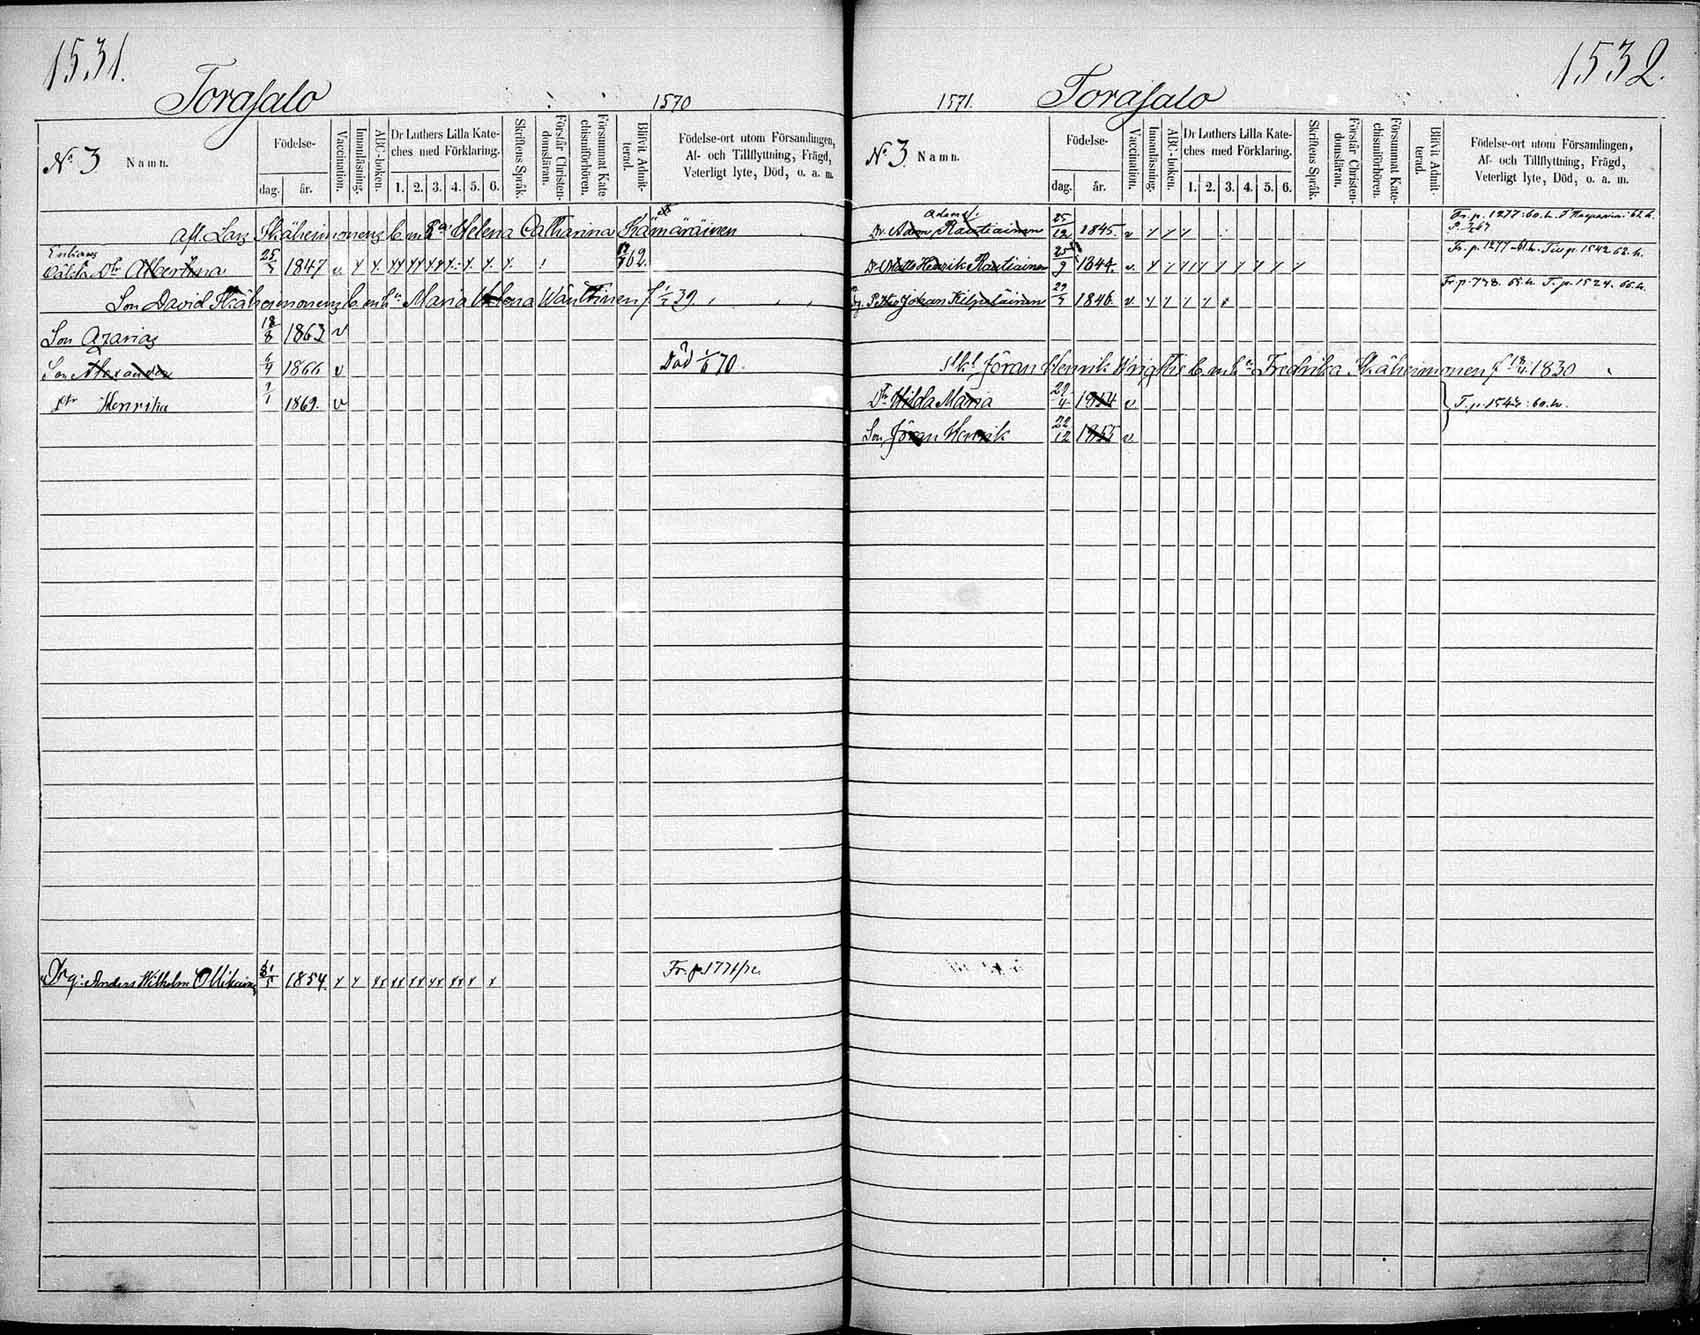 1531.
Torasalo
1570
No 3 Namn.
Födelse-
dag. år.
Vaccination.
Innanläsning.
ABC-boken.
Dr Luthers Lilla Kate-
ches med Förklaring.
1. 2. 3. 4. 5. 6.
Skriftens Språk.
Förstår Christen-
domsläran.
Försummat Kate
chismiförhören.
Blifvit Admit-
terad.
Födelse-ort utom Församlingen,
Af- och Tillflyttning, Frägd,
Veterligt lyte, Död, o. a. m.
Afl. Lars Ikäheimonens Helena Catharina Kämäräinen
Enkans
Dtr Albertina 25/7 1847 v x x xx xx xx x. x. x. x. 62
Son David Ikäheimonens Maria Helena Wänttinen f. 39
Son Azarias 18/8 1863 v
Son Alexander 1866 v Död 1/6 70.
Dtr Henrika 7/1 1869. v
Drg: Anders Wilhelm Ollikainen 1854 x x xx xx xx xx xx x x Fr. p 1771/72
1532.
1571. Torasalo
No 3 Namn.
Födelse-
dag. år.
Vaccination.
Innanläsning.
ABC-boken.
Dr Luthers Lilla Kate-
ches med Förklaring.
1. 2. 3. 4. 5. 6.
Skriftens Språk.
Förstår Christen-
domsläran.
Försummat Kate-
chismiförhören.
Blifvit Admit-
terad.
Födelse-ort utom Församlingen,
Af- och Tillflyttning, Frägd,
Veterligt lyte, Död, o. a. m.
Dr. Adam Rautiainen 25/12 1845. v Fr. p. 1277: 60. h.
Dr. Matts Henrik Rautiainen 25/9 1844. v. Fr. p. 1277 Tu p. 1542 62. h.
Petter Johan Kilpeläinen 29/7 1846. v Fr. p. 798. 65. h. T. p. 1524. 66. h.
Jöran Henrik Fredrika Ikäheimonen f 1830
Dtr Hilda Maria 29/4 1854 v T. p. 60. h.
Son Jöran Henrik 22/12 1855 v